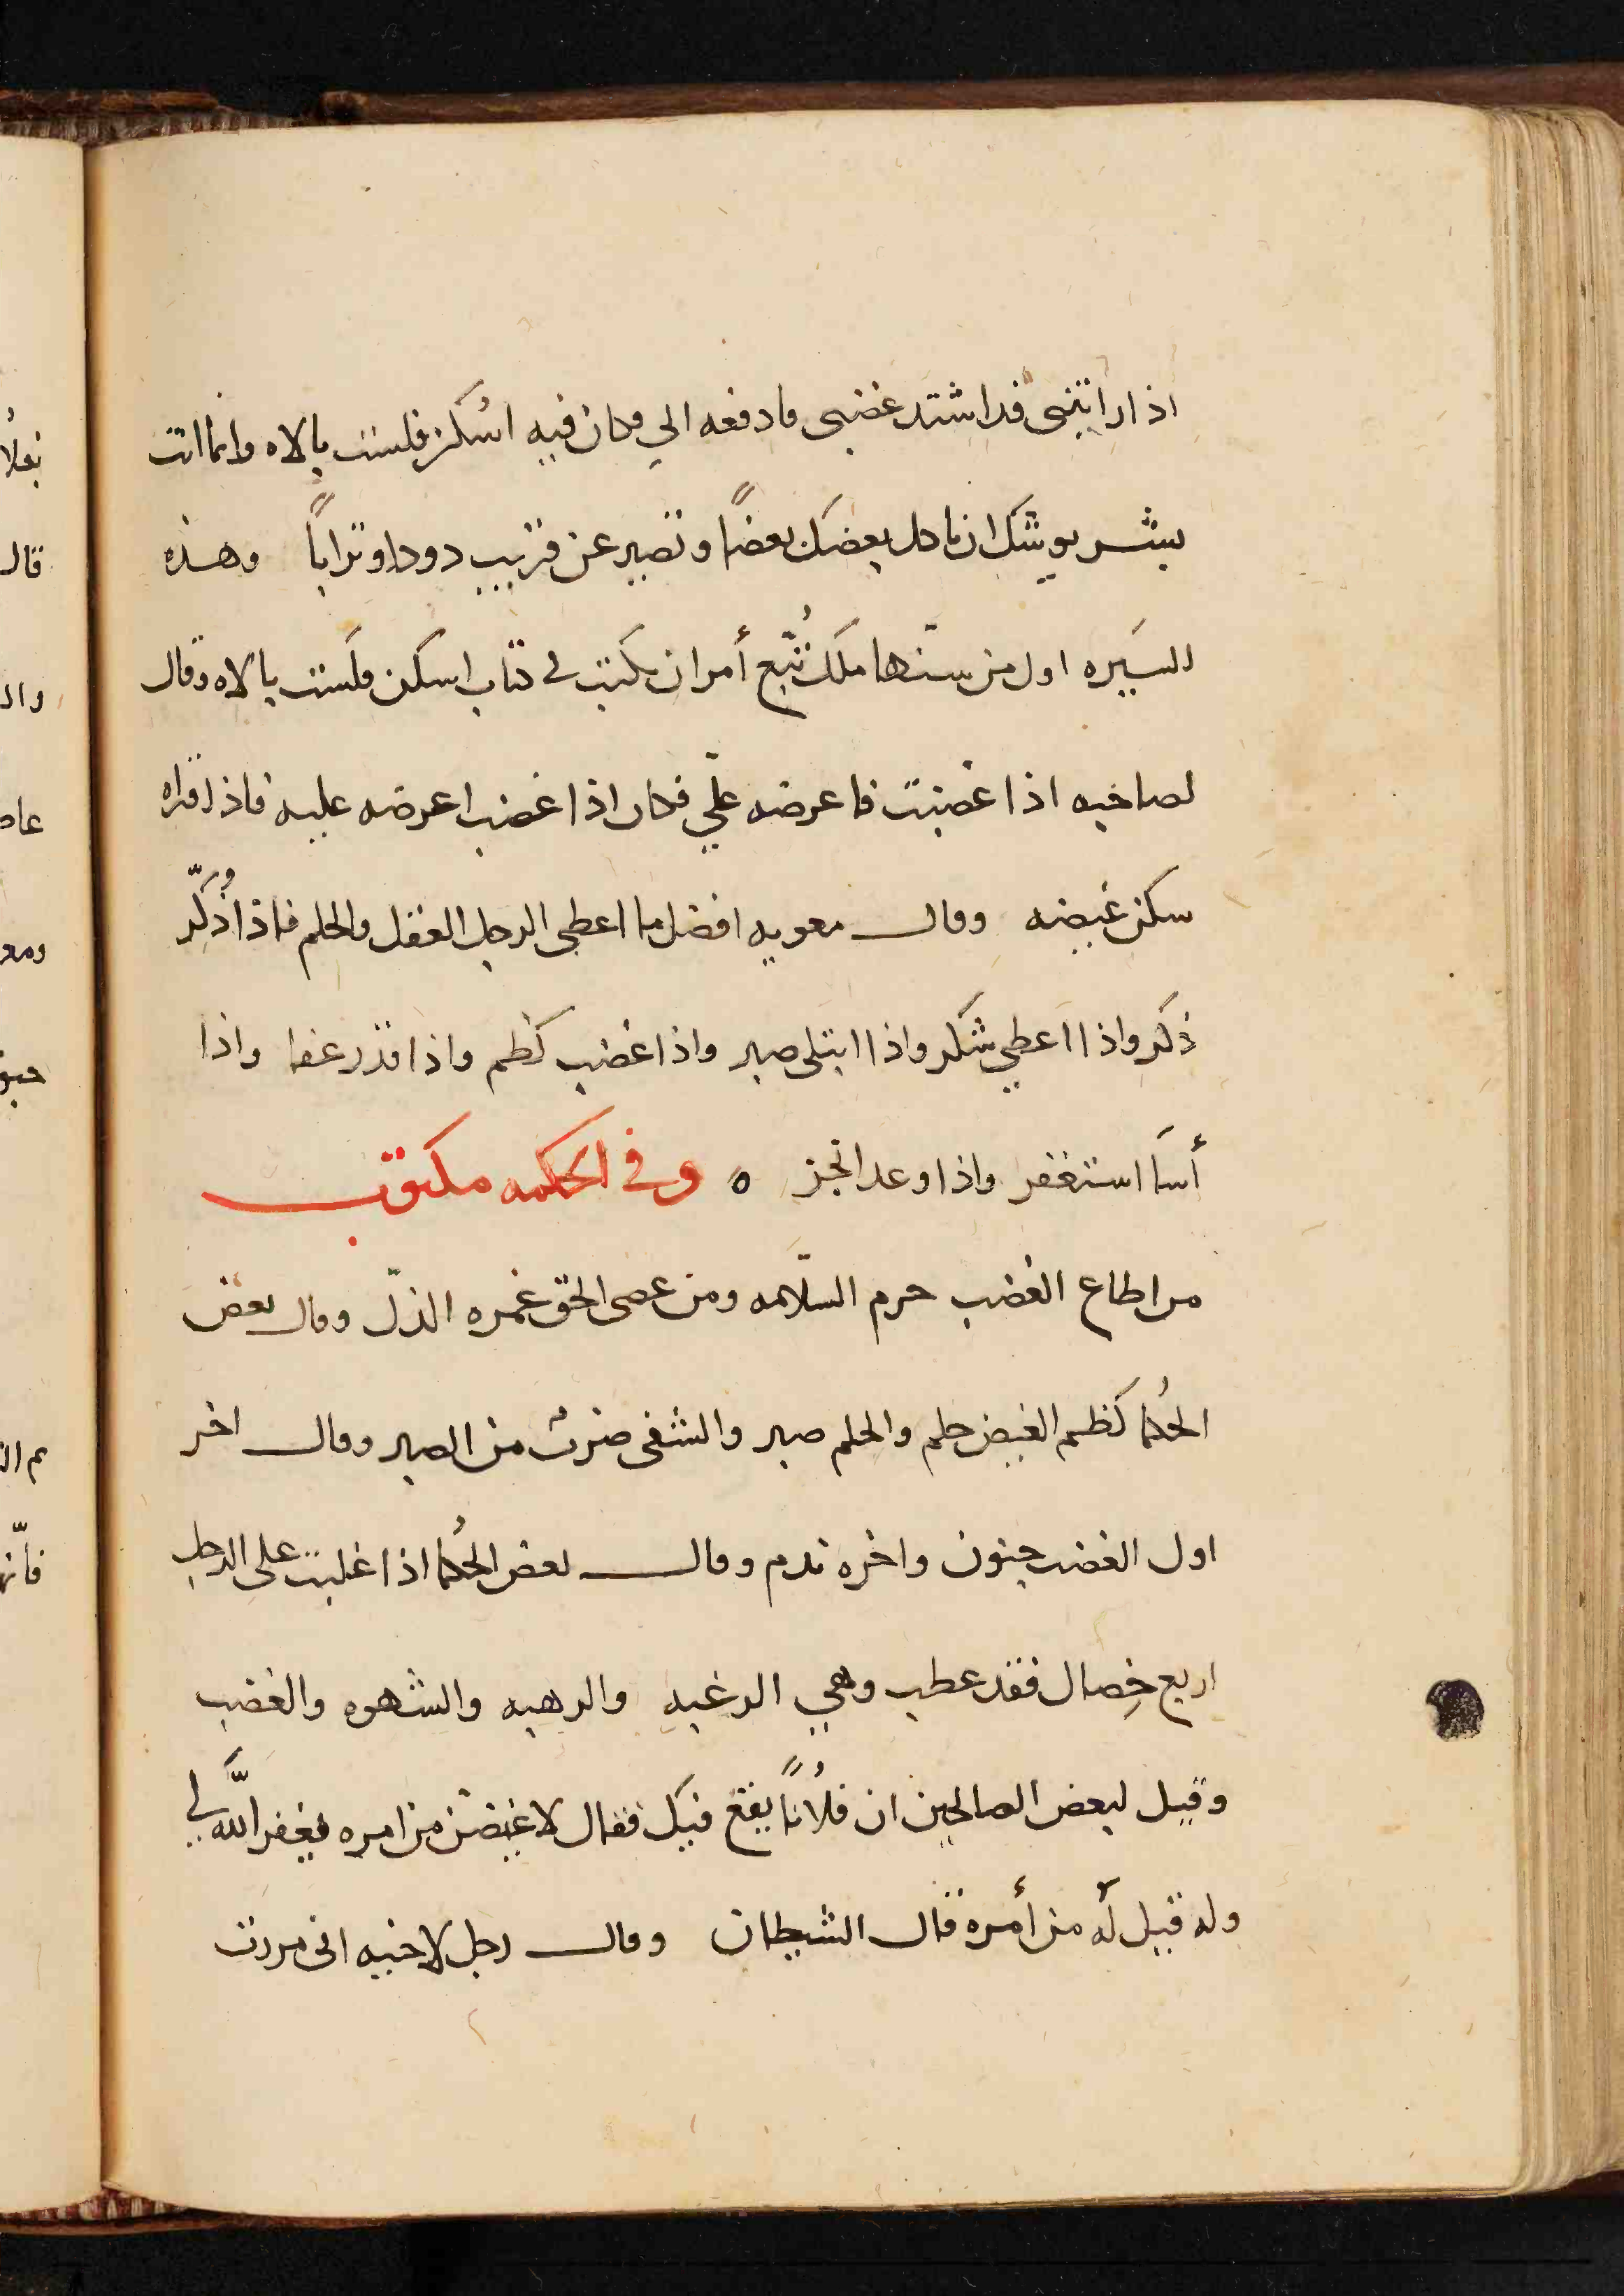 اذا رايتني قد اشتد غضبي فادفعه الي فكان فيه اسُكن فلست بالاه وانما انت
بشر يوشك ان ياكل بعضك بعضًا وتصير عن قريب دودا وترابًا وهذه
السَيره اول من سنّها ملك تُبّع أمر ان يكتب في كتاب اسكن فلست بالاه وقال
لصاحبه اذا غضبت فاعرضه علّي فكان اذا غضب اعرضه عليه فاذا قراه
سكن غيضه وقال معويه افضل ما اعطي الرجل العقل والحلم فاذا ذُكّر
ذكر واذا اعطي شكر واذا ابتلى صبر واذا غضب كظم واذا قدر عفا واذا
أسَا استغفر واذا وعد انجز ٥ وفي الحكمه مكتوب
من اطاع الغضب حرم السلّامه ومن عصى الحق غمره الذلّ وقال بعض
الحُكما كظم الغيض حلم والحلم صبر والتشفي ضرب من الصبر وقال اخر
اول الغضب جنون واخره ندم وقال بعض الحُكما اذا غلبت على الرجل
اربع خِصال فقد عطب وهي الرغبه والرهبه والشهوه والغضب
وقيل لبعض الصالحين ان فلُانًا يقع فيك فقال لاغيضن من امره يغفر اللَّه لي
وله قيل لَه من أمره قال الشيطان وقال رجل لاخيه اني مررت